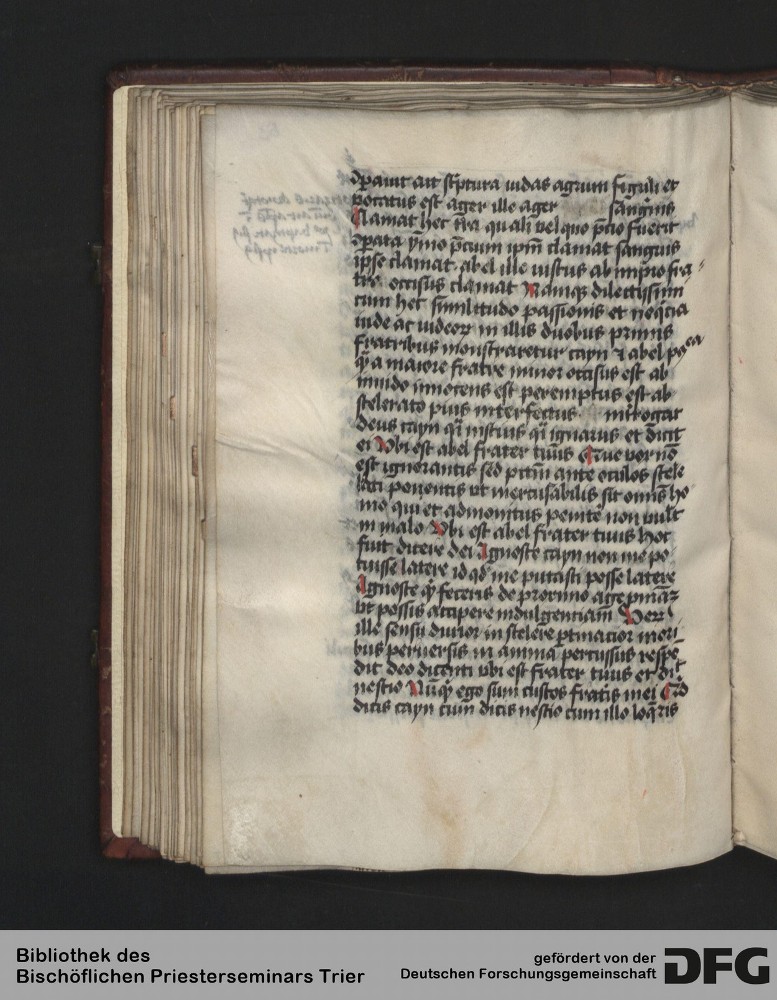 opauit ait sc͛ptura iudas agrum figuli et
vocatus est ager ille ager sanguis
Clamat hec t͛ra quali vel quo p͛cio fuerit
opata ymo p͛cium ipm̄ clamat sanguis
ip̄se clamat abel ille iustus ab impio fra
tre occisus clamat Namqꝫ dilectissimi
cum hec similitudo passionis et neq̄cia
iude ac iudeoꝝ in illis duobus primis
fratribus monstraretur cayn ⁊ abel
qꝫ a maiore fratre minor occisus est ab
inuido innocens est peremptus est ab
scelerato pius interfectus inrogat
deus cayn q̄i inscius q̄i ignarus et dicit
ei Vbi est abel frater tuus Que vox nō
est ignorantis sed p̄ctm̄ ante oculos scele
rati ponentis vt inexcusabilis sit omīs ho
mo qui et admonitus penitē non vult
in malo Vbi est abel frater tuus hoc
fuit dicere dei Agnosce cayn non me po
tuisse latere id qd̄ me putasti posse latere
Agnosce qꝫ feceris de proximo age pniāꝫ
vt possis accipere indulgentiam Verū
ille sensu durior in scelere p̄tinacior mori
bus peruersis in anima percussus respō
dit deo dicenti vbi est frater tuus et di͛t
nescio Nūqꝫ ego sum custos fratris mei Quid
dicis cayn cum dicis nescio cum illo loq̄ris
Bibliothek des
Bischöflichen Priesterseminars Trier
gefördert von der
Deutschen Forschungsgemeinschaft
DFG